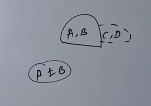 A, B C, D
A ≠ B